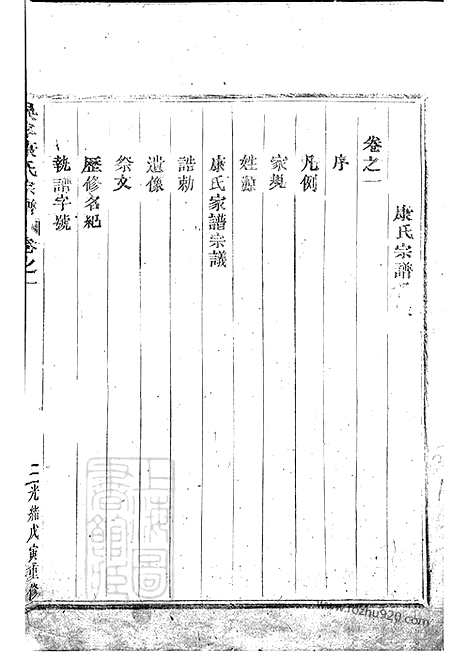 康氏宗譜
卷之一
序
凡例
家規
姓源
康氏家譜宗議
誥勅
遺像
祭文
歷修名紀
執譜字號
康氏宗譜
卷之一
二
光緒戊寅重修
www.fozhu920.com